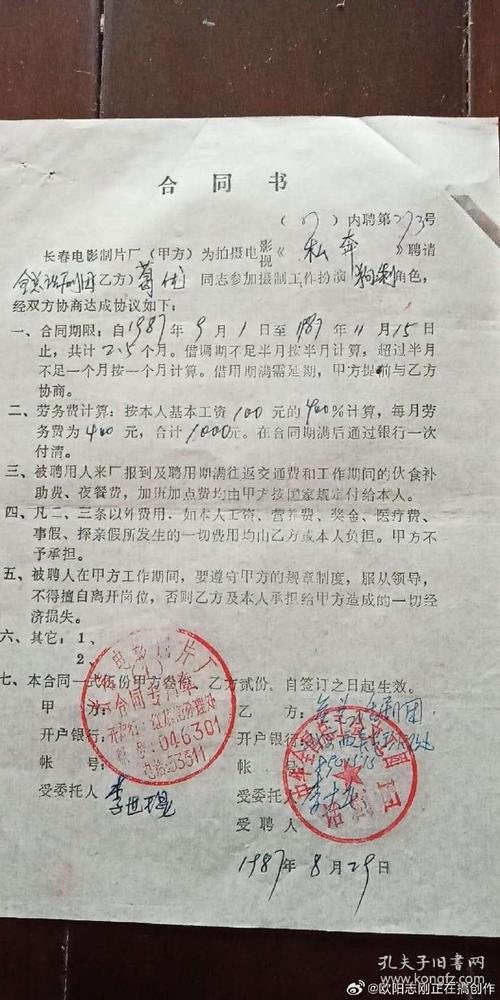 合同书
(87)内聘第273号
长春电影制片厂(甲方)为拍摄电影视《私奔》聘请
全总话剧团乙方)葛优同志参加摄制工作扮演角色,
经双方协商达成协议如下:
一、合同期限:自1987年9月1日至1987年11月15日
止,共计2.5个月。借调期不足半月按半月计算,超过半月
不足一个月按一个月计算。借用期满需延期,甲方提前与乙方
协商。
二、劳务费计算:按本人基本工资100元的400%计算,每月劳
务费为400元,合计1000元。在合同期满后通过银行一次
付清。
三、被聘用人来厂报到及聘用期满往返交通费和工作期间的伙食补
助费、夜餐费,加班加点费均由甲方按国家规定付给本人。
四、凡二、三条以外费用.如本人工资、营养费、奖金、医疗费、
事假、探亲假所发生的一切费用均由乙方或本人负担。甲方不
予承担。
五、被聘人在甲方工作期间,要遵守甲方的规章制度,服从领导,
不得擅自离开岗位,否则乙方及本人承担给甲方造成的一切经
济损失。
六、其它:1、
2、
七、本合同一式伍份甲方叁份,乙方贰份。自签订之日起生效。
甲方:
开户银行:
帐号:
受委托人
电影制片厂
合同专用章
开户行:红旗街办理处
帐号:046301
电话:53311
李世
乙方:全总话剧团
开户银行:
帐号:
受委托人
受聘人
话剧团
1987年8月29日
孔夫子旧书网
www.kongfz.com
@欧阳志刚正在搞创作